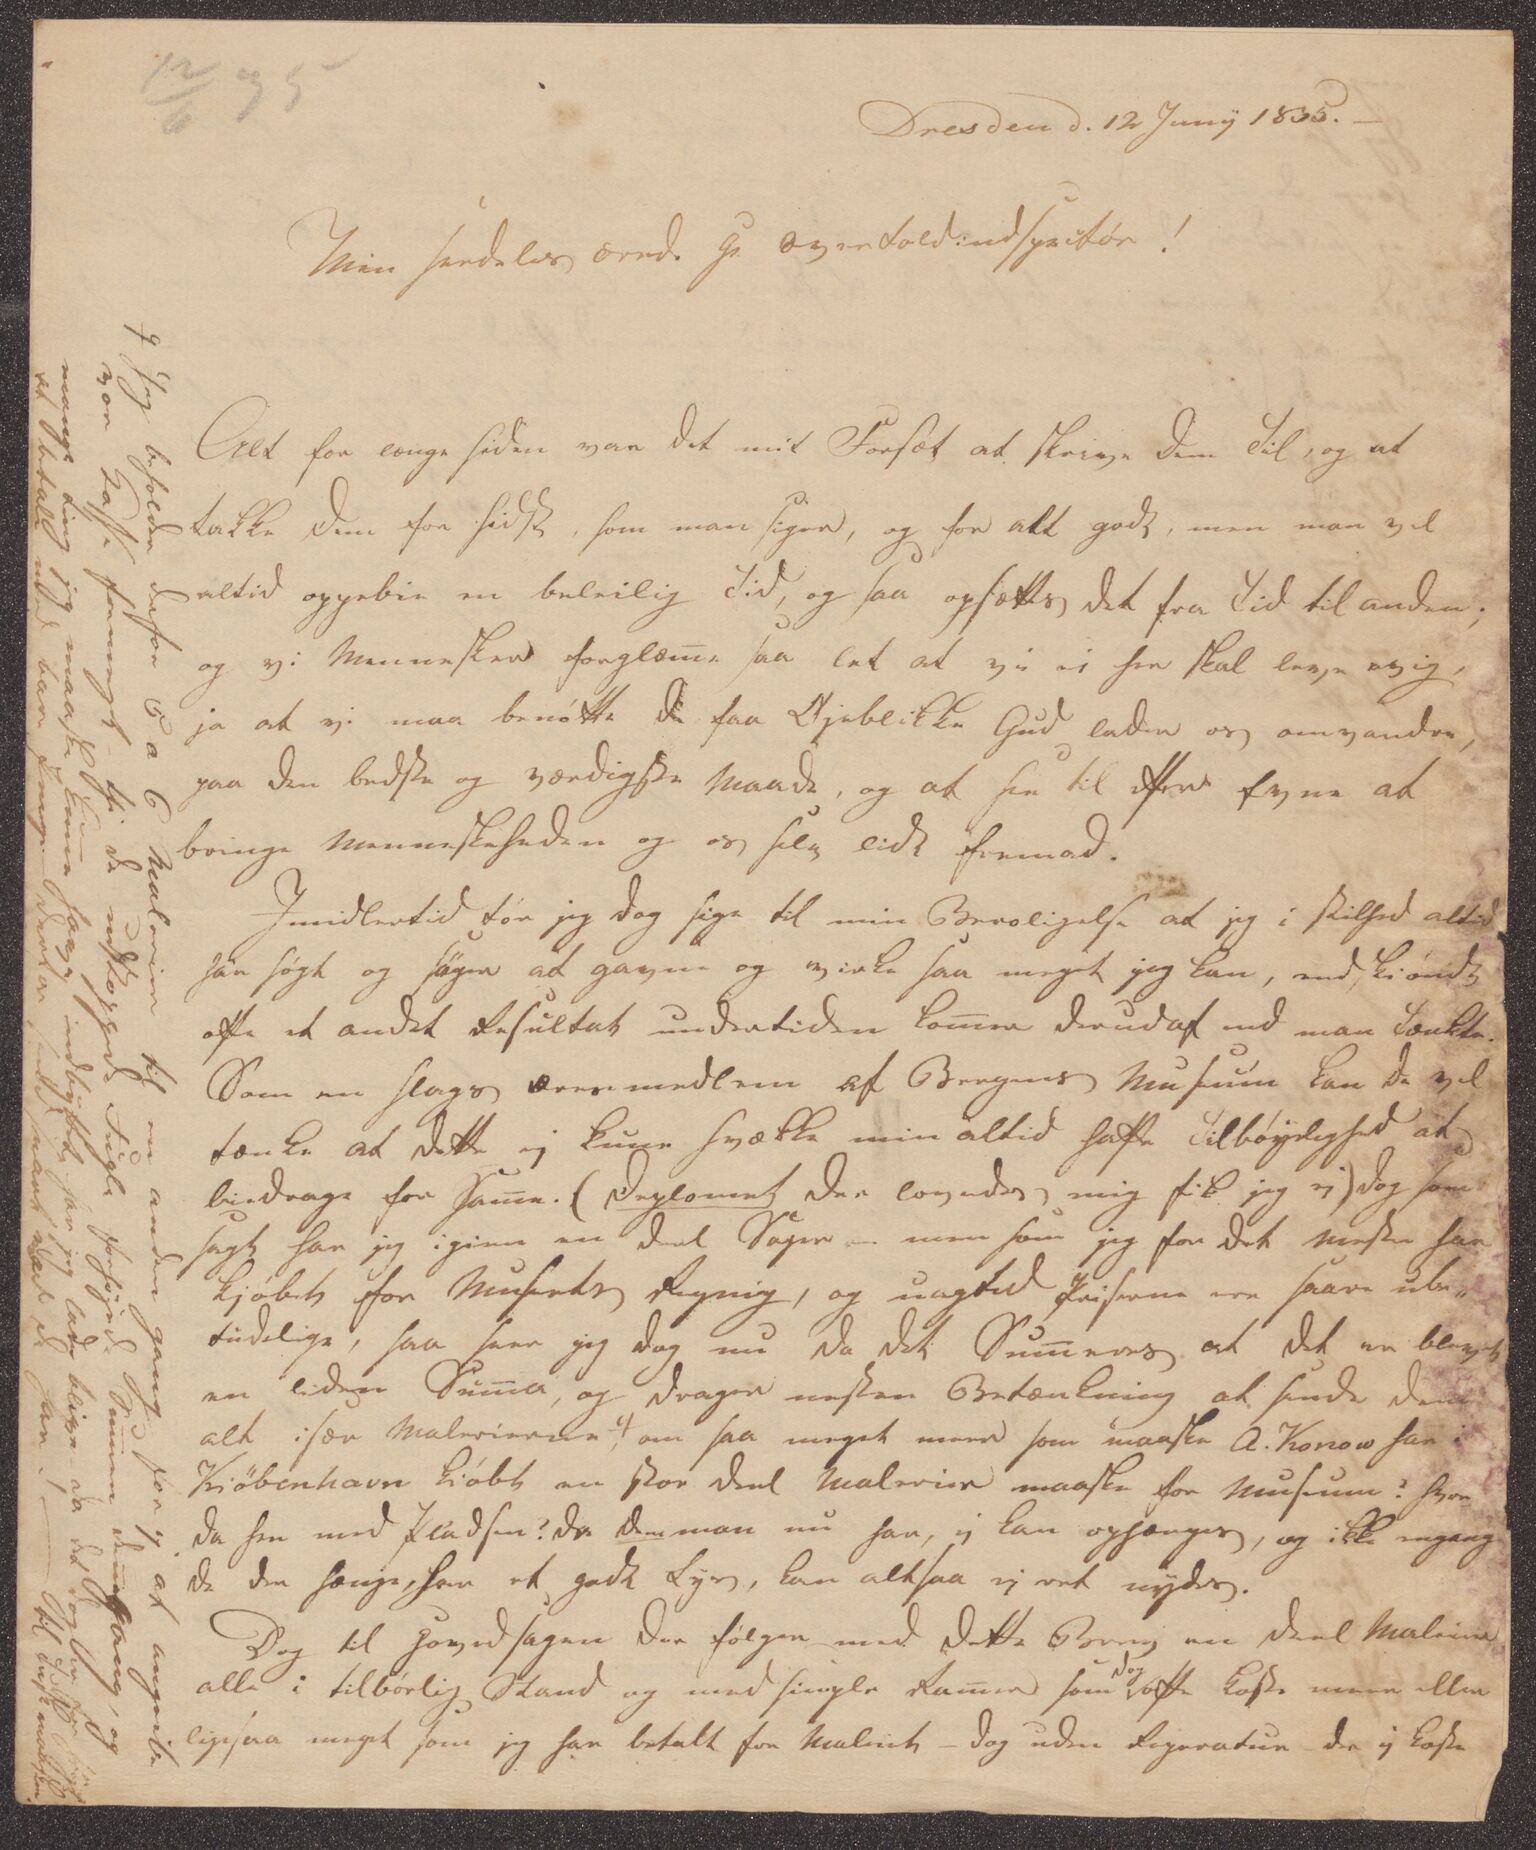 12/6 35
Dresden d. 12 Juny 1835. —
Min særdeles ærede Hr Overtoldindspectör!
Alt for længe siden var det mit Forsæt at skrive Dem Til, og at
takke Dem for sidst, som man siger, og for alt godt, men man vil
altid oppebie en beleilig Tid, og saa opsættes det fra Tid til anden;
og vi Mennesker forglem̅e saa let at vi ei her skal leve evig,
ja at vi maa benötte de faa Öjeblikke Gud lader os omvandre,
paa den bedste og værdigste Maade, og at see til efter Evne at
bringe Menneskeheden og os selv lidt fremad.
Imidlertid tör jeg dog sige til min Beroligelse at jeg i stilhed altid
har sögt og söger at gavne og virke saa meget jeg kan, endskiöndt
ofte et andet Resultat undertiden kom̅er derudaf end man Tænkte.
Som en slags æresmedlem af Bergens Museum kan De vel
tænke at dette ej kune svække min altid hafte Tilböyelighed at
biedrage for Sam̅e. (Deplomet der lovedes mig fik jeg ej) Dog som
sagt har jeg igien en deel Sager – men som jeg for det meste har
kjöbt for Museets Regnig, og uagted Priserne ere saare ube„
tüdelige, saa seer jeg dog nu da det Sum̅eres at det er blevet
en liden Sum̅a, og drager nesten Betænkning at sende dem
alt især Malerierne, om saa meget meer som maaske A. Konow har i
Kiöbenhavn kiöbt en stor deel Malerier maaske for Museum? hvor
da hen med Pladsen? da dem man nu har, ej kan ophænges, og ikke engang
de der hænge, har et godt Lys, kan altsaa ej ret nydes.
Dog til Hovedsagen der fölger med dette Brev en deel Malerier
alle i tilbörlig Stand og med simple Ram̅er som dog ofte koste meer eller
ligesaa meget som jeg har betalt for Maleriet – dog uden Reperatur der ej koste
Jeg beholder derfor 5 a 6 Malerier til en anden gang for ej at angribe
vor Casse formeget – thi de udstoppede Fugle forhöjede Sum̅en den̅egang, og
mange ting jeg maaske kun̅e have indbyttet har jeg ladet blive, da det dog
at betale med bare Penge